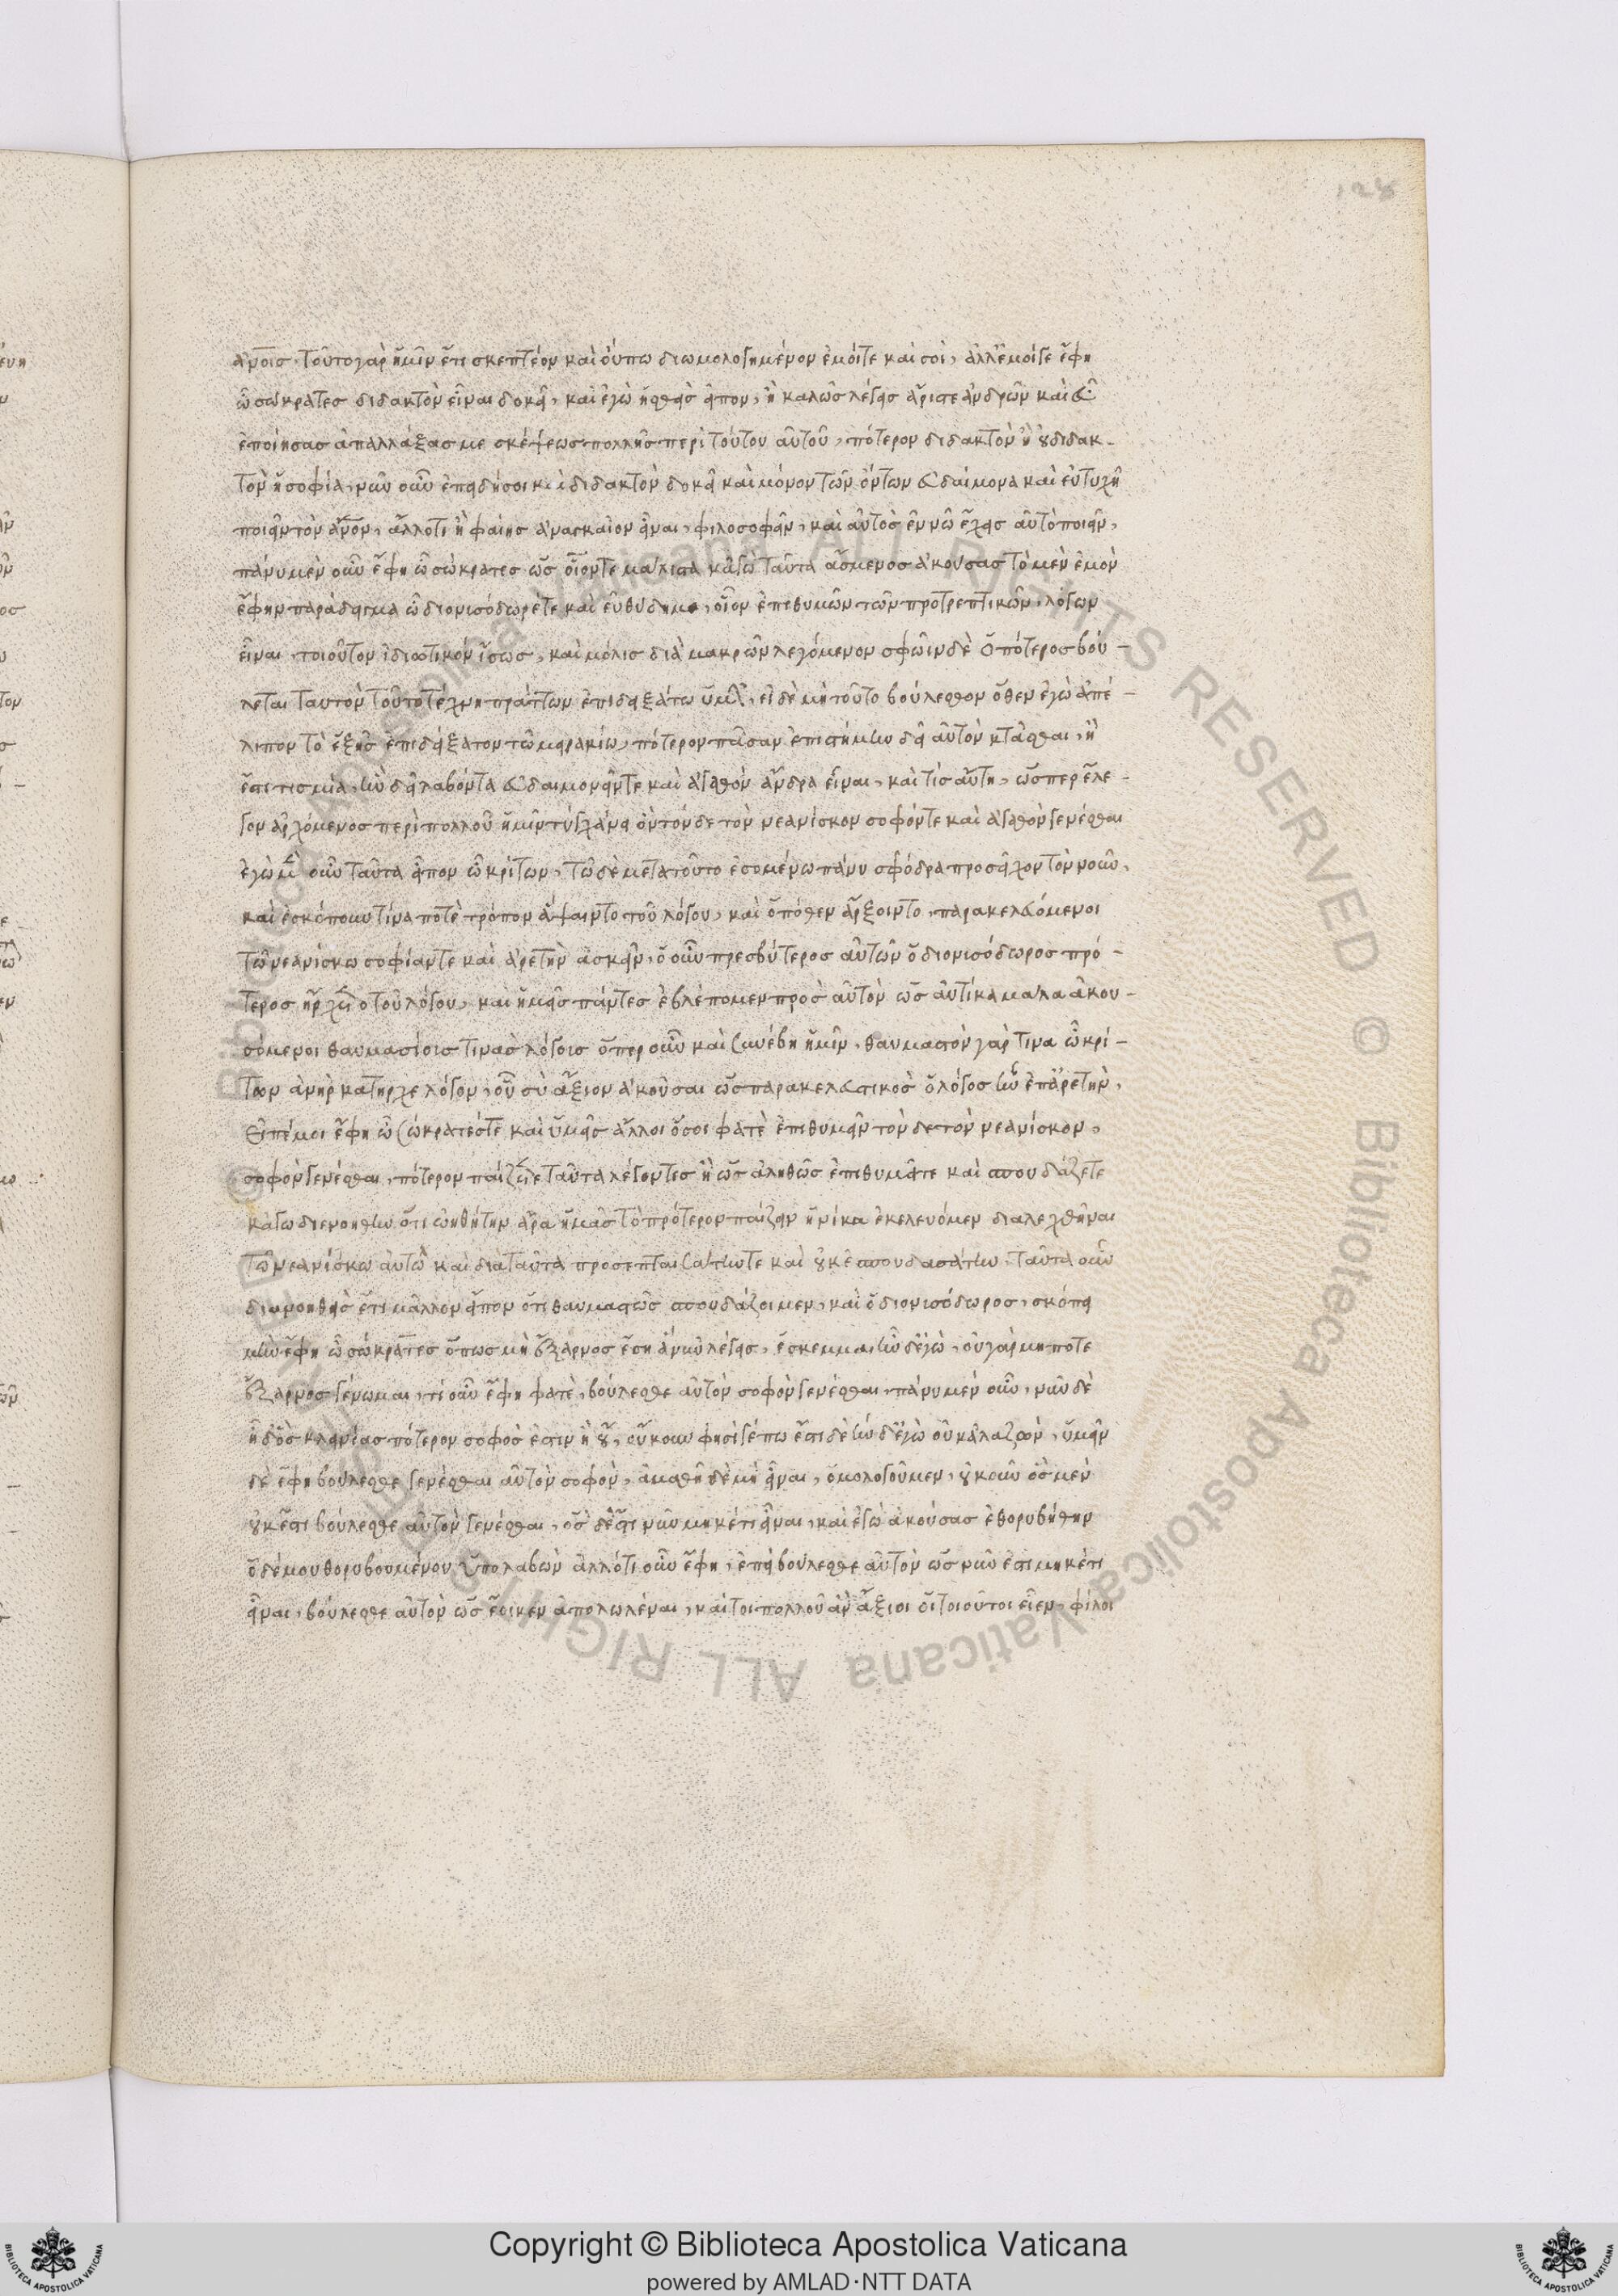 ἀνοις· τοῦτο γὰρ ἡμῖν ἔτι σκεπτέον καὶ οὔπω διωμολογημένον ἐμοίτε καὶ σοί, ἀλλ' ἔμοιγε ἔφη
ὦ σώκρατες διδακτὸν εἶναι δοκεῖ, καὶ ἐγὼ ἡσθεὶς εἶπον, ἦ καλῶς λέγεις ἄριστε ἀνδρῶν καὶ εὖ
ἐποίησας ἀπαλλάξας με σκέψεως πολλῆς περὶ τούτου αὐτοῦ, πότερον διδακτὸν ἢ οὐ διδακ-
τὸν ἡ σοφία, νῦν οὖν ἐπειδή σοι καὶ διδακτὸν δοκεῖ καὶ μόνον τῶν ὄντων εὐδαίμονα καὶ εὐτυχῆ
ποιεῖν τὸν ἄνον, ἄλλοτι ἢ φαίης ἀναγκαῖον εἶναι, φιλοσοφεῖν, καὶ αὐτὸς ἐν νῷ ἔχεις αὐτὸ ποιεῖν,
πάνυ μὲν οὖν ἔφη ὦ σώκρατες ὡς οἷόν τε μάλιστα κἀγὼ ταῦτα ἄσμενος ἀκούσας τὸ μὲν ἐμὸν
ἔφην παράδειγμα ὦ διονυσόδωρέ τε καὶ εὐθύδημε, οἷον ἐπιθυμῶν τῶν προτρεπτικῶν, λόγων
εἶναι, τοιοῦτον ἰδιωτικὸν ἴσως, καὶ μόλις διὰ μακρῶν λεγόμενον σφῶιν δὲ ὁπότερος βού-
λεται ταυτὸν τοῦτο τέχνη πράττων ἐπιδειξάτω ἡμῖν, εἰ δὲ μὴ τοῦτο βούλεσθον ὅθεν ἐγὼ ἀπέ-
λιπον τὸ ἑξῆς ἐπιδείξατον τῶ μειρακίω, πότερον πᾶσαν ἐπιστήμην δεῖ αὐτὸν κτᾶσθαι, ἢ
ἔστι τις μία, ἣν δεῖ λαβόντα εὐδαιμονεῖν τε καὶ ἀγαθὸν ἄνδρα εἶναι, καὶ τίς αὕτη, ὥσπερ ἔλε-
γον ἀρχόμενος περὶ πολλοῦ ἡμῖν τυγχάνει ὂν τόνδε τὸν νεανίσκον σοφόν τε καὶ ἀγαθὸν γενέσθαι
ἐγὼ μὲν οὖν ταῦτα εἶπον ὦ κρίτων, τῶ δὲ μετὰ τοῦτο ἐσομένω πάνυ σφόδρα προσεῖχον τὸν νοῦν,
καὶ ἐσκόπουν τίνα ποτὲ τρόπον ἅψαιντο τοῦ λόγου, καὶ ὁπόθεν ἄρξοιντο, παρακελευόμενοι
τῶ νεανίσκω σοφίαν τε καὶ ἀρετὴν ἀσκεῖν, ὁ οὖν πρεσβύτερος αὐτῶν ὁ διονυσόδωρος πρό-
τερος ἤρχετο τοῦ λόγου, καὶ ἡμεῖς πάντες ἐβλέπομεν πρὸς αὐτὸν ὡς αὐτίκα μάλα ἀκου-
σόμενοι θαυμασίοις τινὰς λόγοις ὅπερ οὖν καὶ συνέβη ἡμῖν, θαυμαστὸν γάρ τινα ὦ κρί-
των ἀνὴρ κατῆρχε λόγον, οὗ σὺ ἄξιον ἀκοῦσαι ὡς παρακελευστικὸς ὁ λόγος ἦν ἐπ' ἀρετήν,
εἰπέ μοι ἔφη ὦ σώκρατές τε καὶ ὑμεῖς ἄλλοι ὅσοι φατὲ ἐπιθυμεῖν τόνδε τὸν νεανίσκον,
σοφὸν γενέσθαι, πότερον παίζετε ταῦτα λέγοντες ἢ ὡς ἀληθῶς ἐπιθυμεῖτε καὶ σπουδάζετε
κἀγὼ διενοήθην ὅτι ὠηθήτην ἄρα ἡμᾶς τὸ πρότερον παίζειν ἡνίκα ἐκελευόμεν διαλεχθῆναι
τῶ νεανίσκω αὐτὼ καὶ διὰ ταῦτα προσεπαισάτην τε καὶ οὐκ ἐσπουδασάτην, ταῦτα οὖν
διανοηθεὶς ἔτι μᾶλλον εἶπον ὅτι θαυμαστῶς σπουδάζοιμεν, καὶ ὁ διονυσόδωρος, σκόπει
μὴν ἔφη ὦ σώκρατες ὅπως μὴ ἔξαρνος ἔση ἃ νῦν λέγεις, ἔσκεμμαι ἦν δ' ἐγώ, οὐ γὰρ μήποτε
ἔξαρνος γένωμαι, τί οὖν ἔφη φατὲ, βούλεσθε αὐτὸν σοφὸν γενέσθαι, πάνυ μὲν οὖν, νῦν δὲ
ἦ δ' ὃς κλεινίας πότερον σοφός ἐστιν ἢ οὔ, οὔκουν φησί γέ πω ἔστι δὲ ἦν δ' ἐγὼ οὐκ ἀλαζών, ὑμεῖς
δὲ ἔφη βούλεσθε γενέσθαι αὐτὸν σοφὸν, ἀμαθῆ δὲ μὴ εἶναι, ὁμολογοῦμεν, οὐκοῦν ὃς μὲν
οὐκ ἔστι βούλεσθε αὐτὸν γενέσθαι, ὃς δ' ἔστι νῦν μηκέτι εἶναι, καὶ ἐγὼ ἀκούσας ἐθορυβήθην
ὁ δέ μου θορυβουμένου ὑπολαβὼν ἄλλότι οὖν ἔφη, ἐπεὶ βούλεσθε αὐτὸν ὡς νῦν ἔστι μηκέτι
εἶναι, βούλεσθε αὐτὸν ὡς ἔοικεν ἀπολωλέναι, καίτοι πολλοῦ ἂν ἄξιοι οἱ τοιοῦτοι εἶεν, φίλοι
Copyright © Biblioteca Apostolica Vaticana
powered by AMLAD·NTT DATA